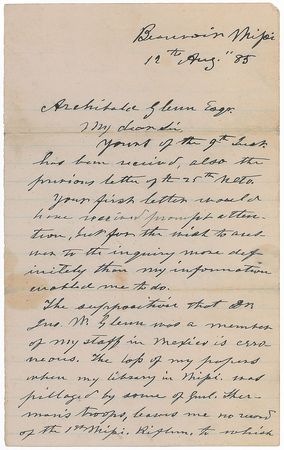 Beauvoir Mipi.
12th Aug. "85
Archibald Glenn Esqr.
My dear sir,
Yours of the 9th Inst.
has been received, also the
previous letter of the 25th Ulto.
Your first letter would
have received prompt atten-
tion, but for the wish to ans-
wer to the inquiry more def-
initely than my information
enabled me to do.
The supposition that Dr.
Jno. W. Glenn was a member
of my staff in Mexico is erro-
neous. The loss of my papers
when my library in Mipi. was
pillaged by some of Genl. Sher-
man's troops, leaves me no record
of the 1st Mipi. Riflem. to which